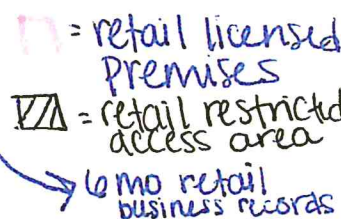 = retail licensed
premises
= retail restricted
access area
6 mo retail
business records